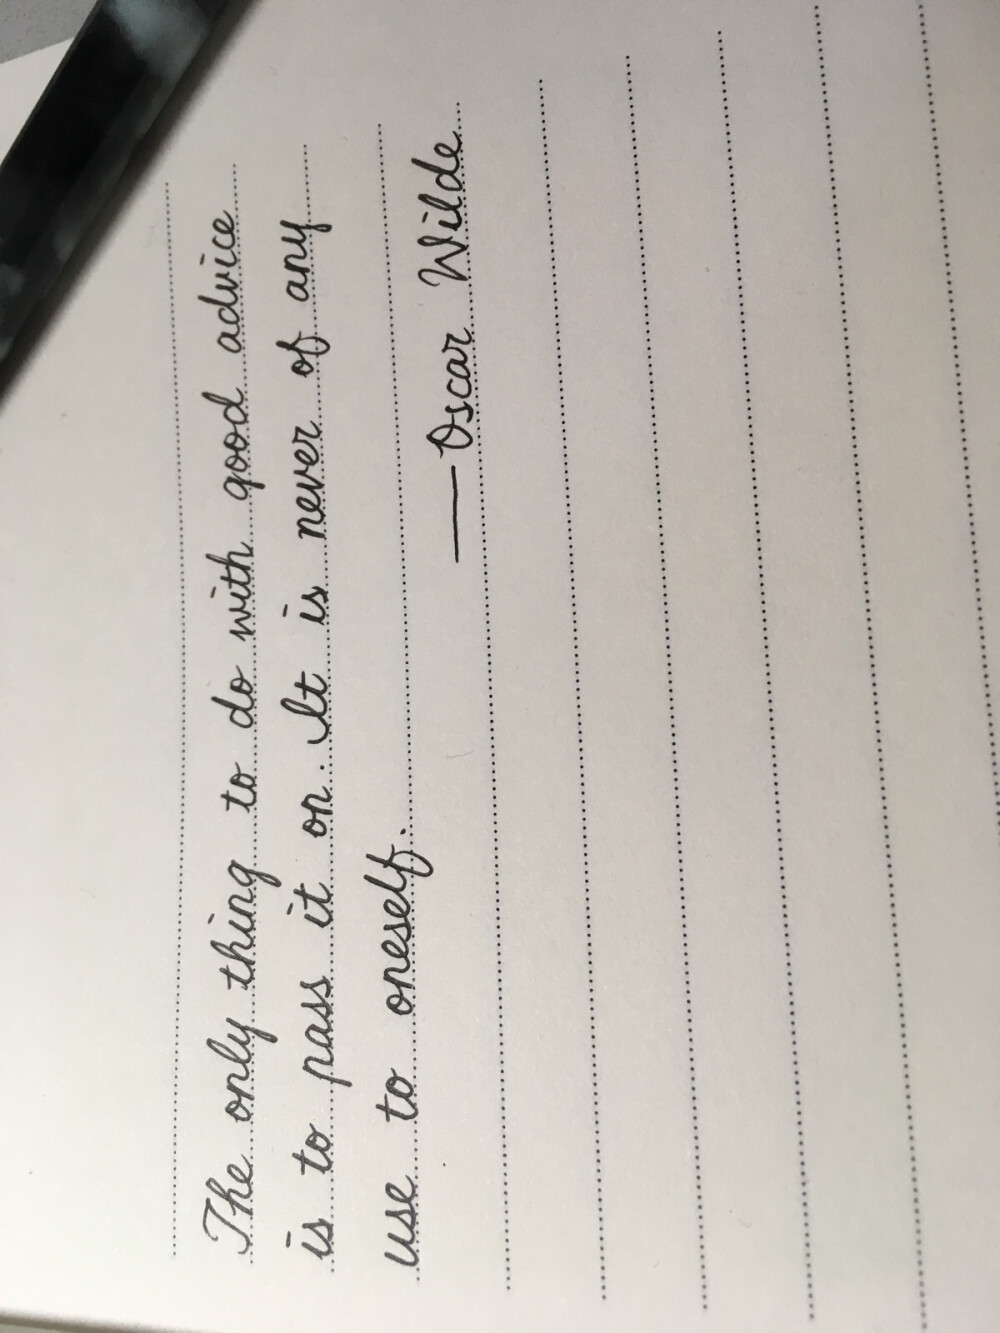 The only thing to do with good advice
is to pass it on. It is never of any
use to oneself.
—Oscar Wilde